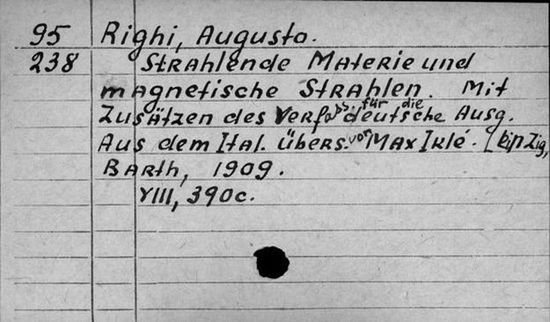 95 Righi, Augusto.
238 Strahlende Materie und
magnetische Strahlen. Mit
Zusätzen des Verfass. für die deutsche Ausg.
Aus dem Ital. übers. von Max Iklé. Leipzig,
Barth, 1909.
VIII, 390c.